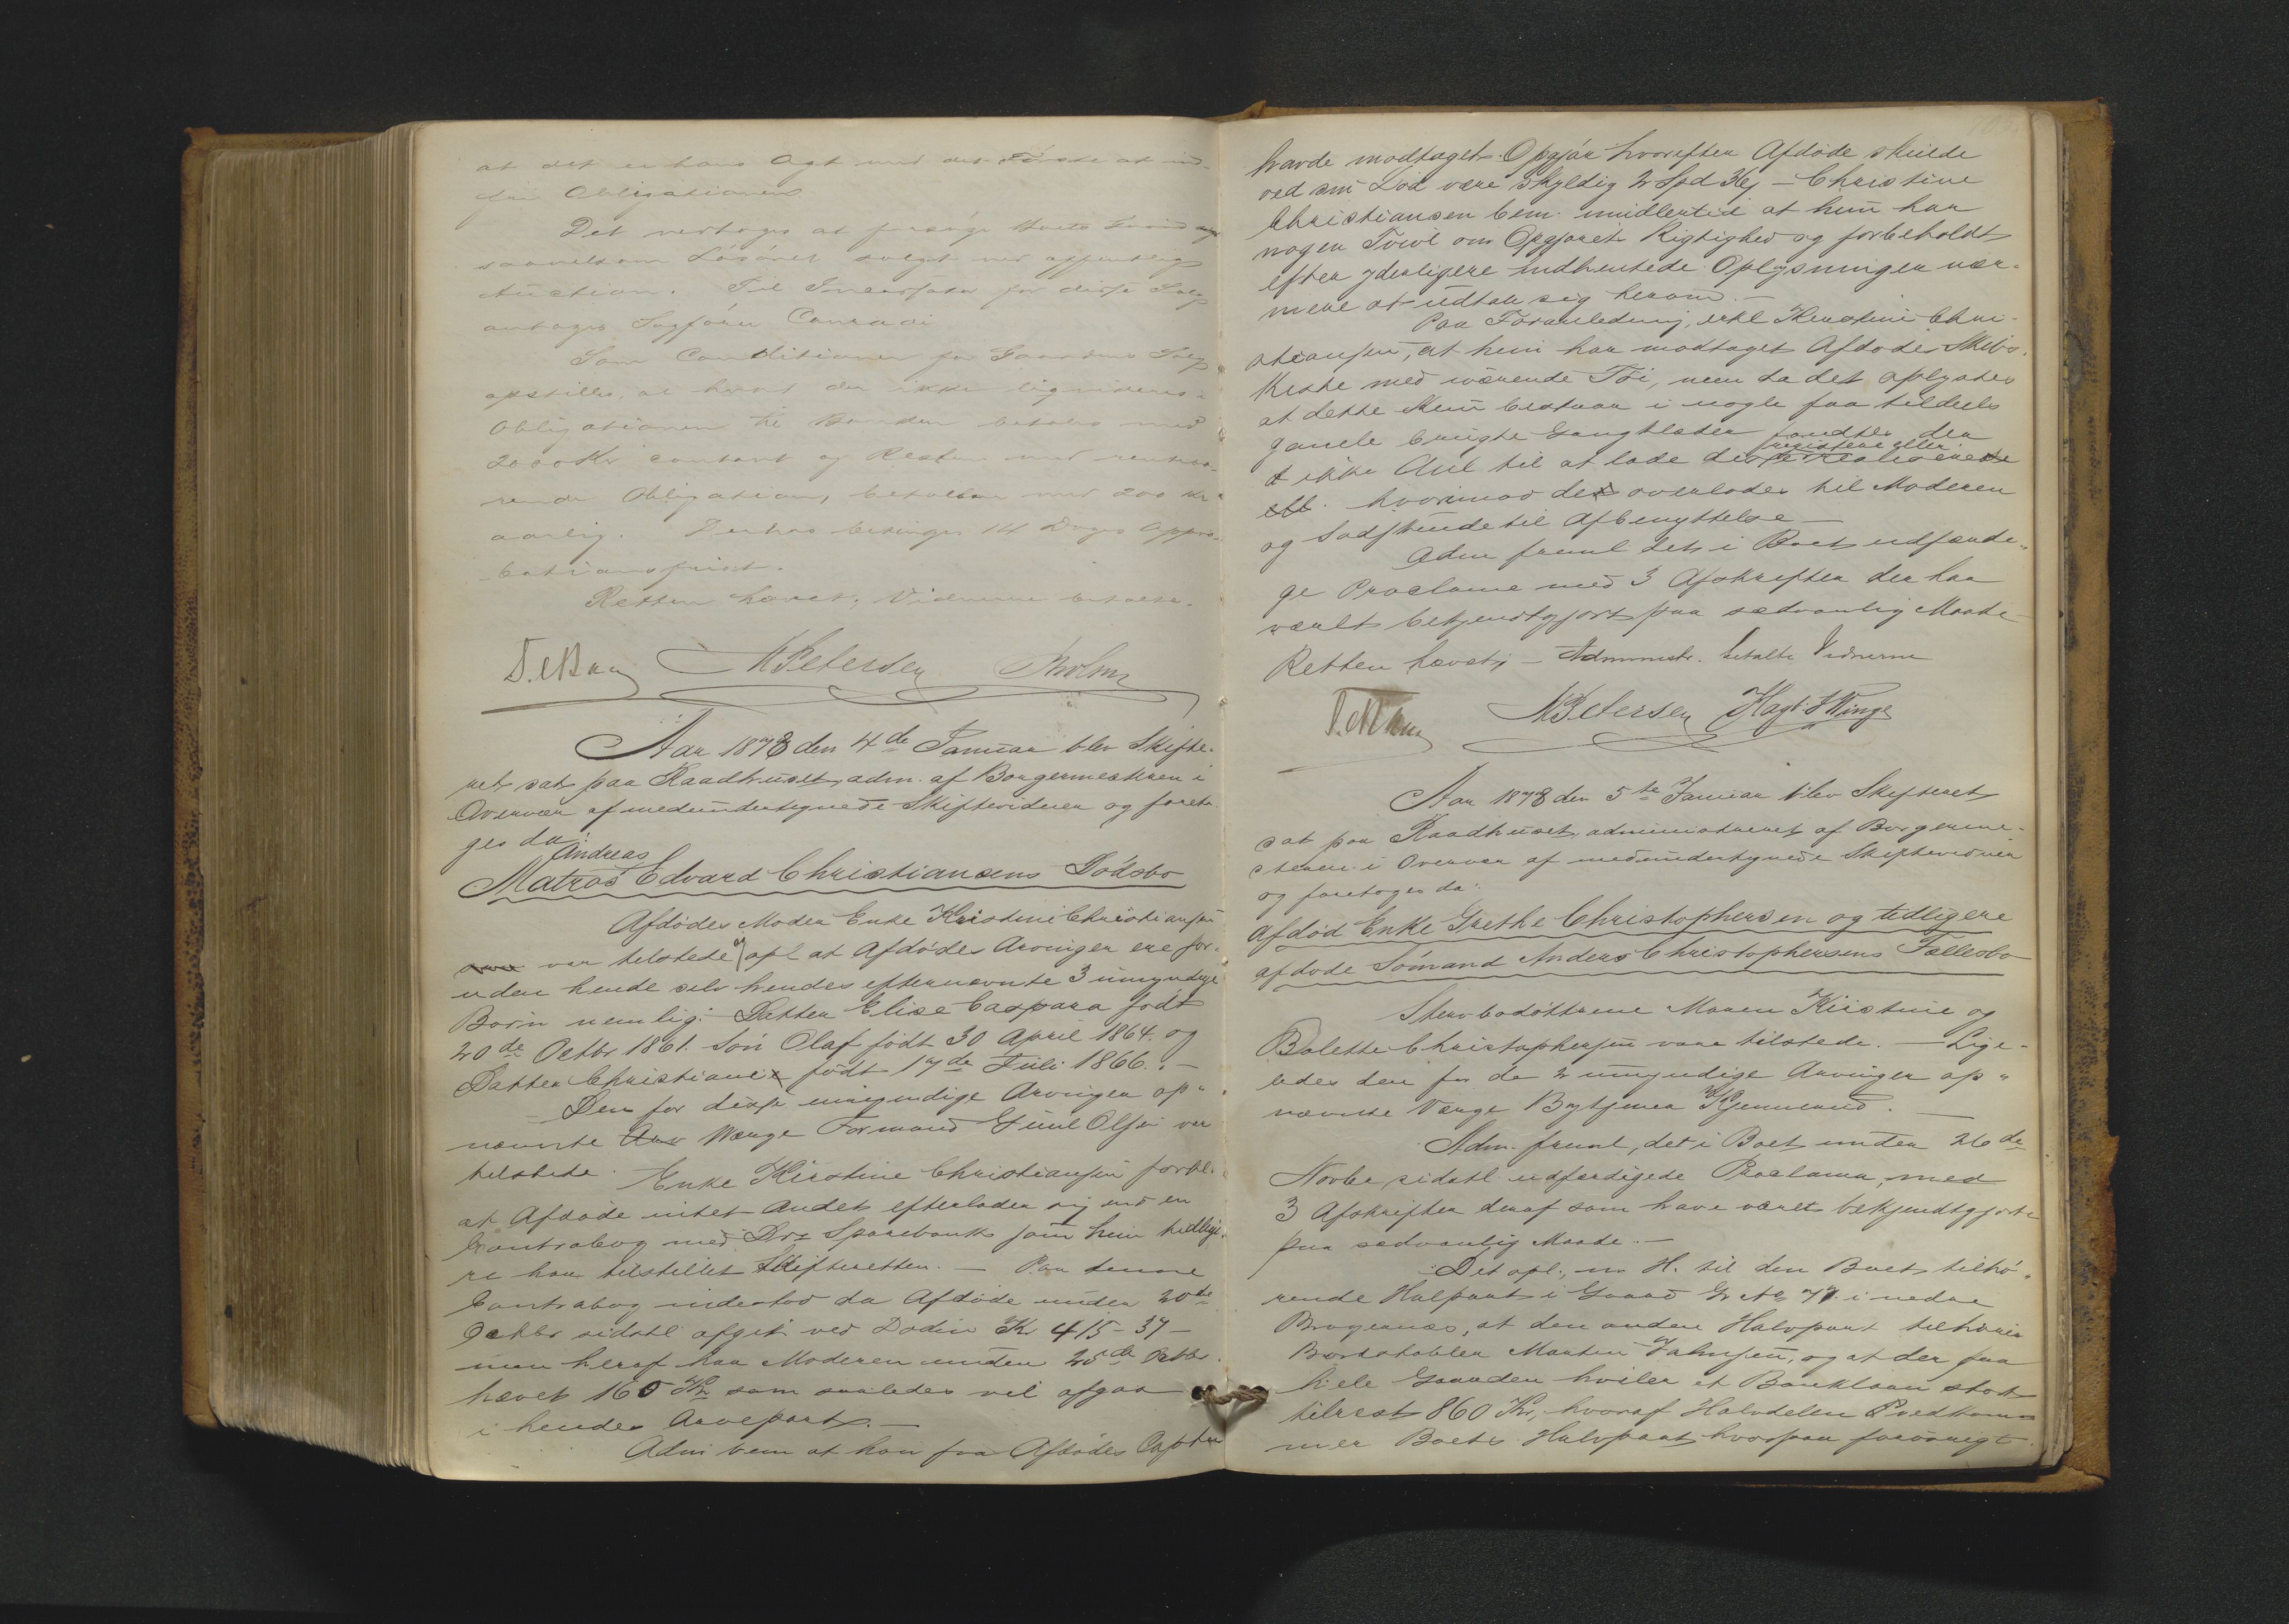 at det er hans Agt med det Første at ind-
fri Obligationen
Det vedtoges at forsøge Boets
saavelsom Løsøret solgt ved offentlig
Auction. Til Incassator for disse Salg
antages Sagfører Conradi
Som Conditioner for Gaardens Salg
opstilles, at hvad der ikke liqvideres
Obligationen til Banken betales med
2000 Kr contant og Resten med rentebæ-
rende Obligation, betalbar med 200 Kr
aarlig. Derhos betinges 14 Dages Appro-
bationsfrist.
Retten hævet, Vidnerne betalte.
M Petersen Holm
Aar 1878 den 4de Januar blev Skifte-
ret sat paa Raadhuset, adm. af Borgermesteren i
Overvær af medundertegnede Skiftevidner og foreto-
ges da:
Andreas
Matros Edvard Christiansens Dødsbo
Afdødes Moder Enke Kristine Christiansen
var tilstede og opl. at Afdødes Arvinger ere for-
uden hende selv hendes efternævnte 3 umyndige
Børn nemlig: Datter Elise Caspara født
20de Octbr 1861. Søn Olaf født 30 April 1864. og
Datter Christiane født 17de Juli 1866. –
Den for disse umyndige Arvinger op-
nævnte Værge Formand Olsen var
tilstede. Enke Kirstine Christiansen forkl.
at Afdøde intet andet efterlader sig end en
Contrabog med Drs Sparebank som hun tidlige-
re har tilstillet Skifteretten. – Paa denne
Contrabog indestod da Afdøde under 20de
Octbr sidstl. afgik ved Døden Kr 415-37 –
men heraf har Moderen under 25de Octbr
hævet 160 Kr som saaledes vil afgaa
i hendes Arvepart. –
Adm bem at han fra Afdødes Captn
havde modtaget Opgjør hvorefter Afdøde skulde
ved sin Død være skyldig 2 Spd – Christine
Christiansen bem. imidlertid at hun har
nogen Tvivl om Opgjørets Rigtighed og forbeholdt
efter yderligere indhentede Oplysninger nær-
mere at udtale sig herom. –
Paa Foranledning erkl Kirstine Chri-
stiansen, at hun har modtaget Afdødes Skibs-
kiste med værende Tøi, men da det oplystes
at dette kun bestaar i nogle faa tildels
gamle brugte Gangklæder fandtes der
registrere eller
ikke Anl til at lade disse realisere
hvorimod de overlodes til Moderen
og Sødskende til Afbenyttelse –
Adm freml det i Boet udfærdi-
ge Proclama med 3 Afskrifter der har
været bekjendtgjort paa sædvanlig Maade
Retten hævet, – Administr. betalte Vidnerne
M Petersen Hagb. Winge
Aar 1878 den 5te Januar blev Skifteret
sat paa Raadhuset, administreret af Borgerme-
steren i Overvær af medundertegnede Skiftevidner
og foretoges da:
Afdød Enke Grethe Christophersen og tidligere
afdøde Sømand Anders Christophersens Fællesbo
Stervbodøttrene Maren Kirstine og
Bolette Christophersen vare tilstede. – Lige-
ledes den for de 2 umyndige Arvinger op-
nævnte Værge Bytjener Kjennerud. –
Adm. freml, det i Boet under 26de
Novbr sidstl. udfærdigede Proclama, med
3 Afskrifter deraf som have været bekjendtgjorte
paa sædvanlig Maade. –
Det opl., m. H. til den Boet tilhø-
rende Halvpart i Gaard Gr No 77 i nedre
Bragernæs, at den anden Halvpart tilhører
Bordstabler Morten Johnsen, og at der paa
hele Gaarden hviler et Banklaan stort
tilrest 860 Kr, hvoraf Halvdelen vedkom-
mer Boets Halvpart hvorpaa forøvrigt